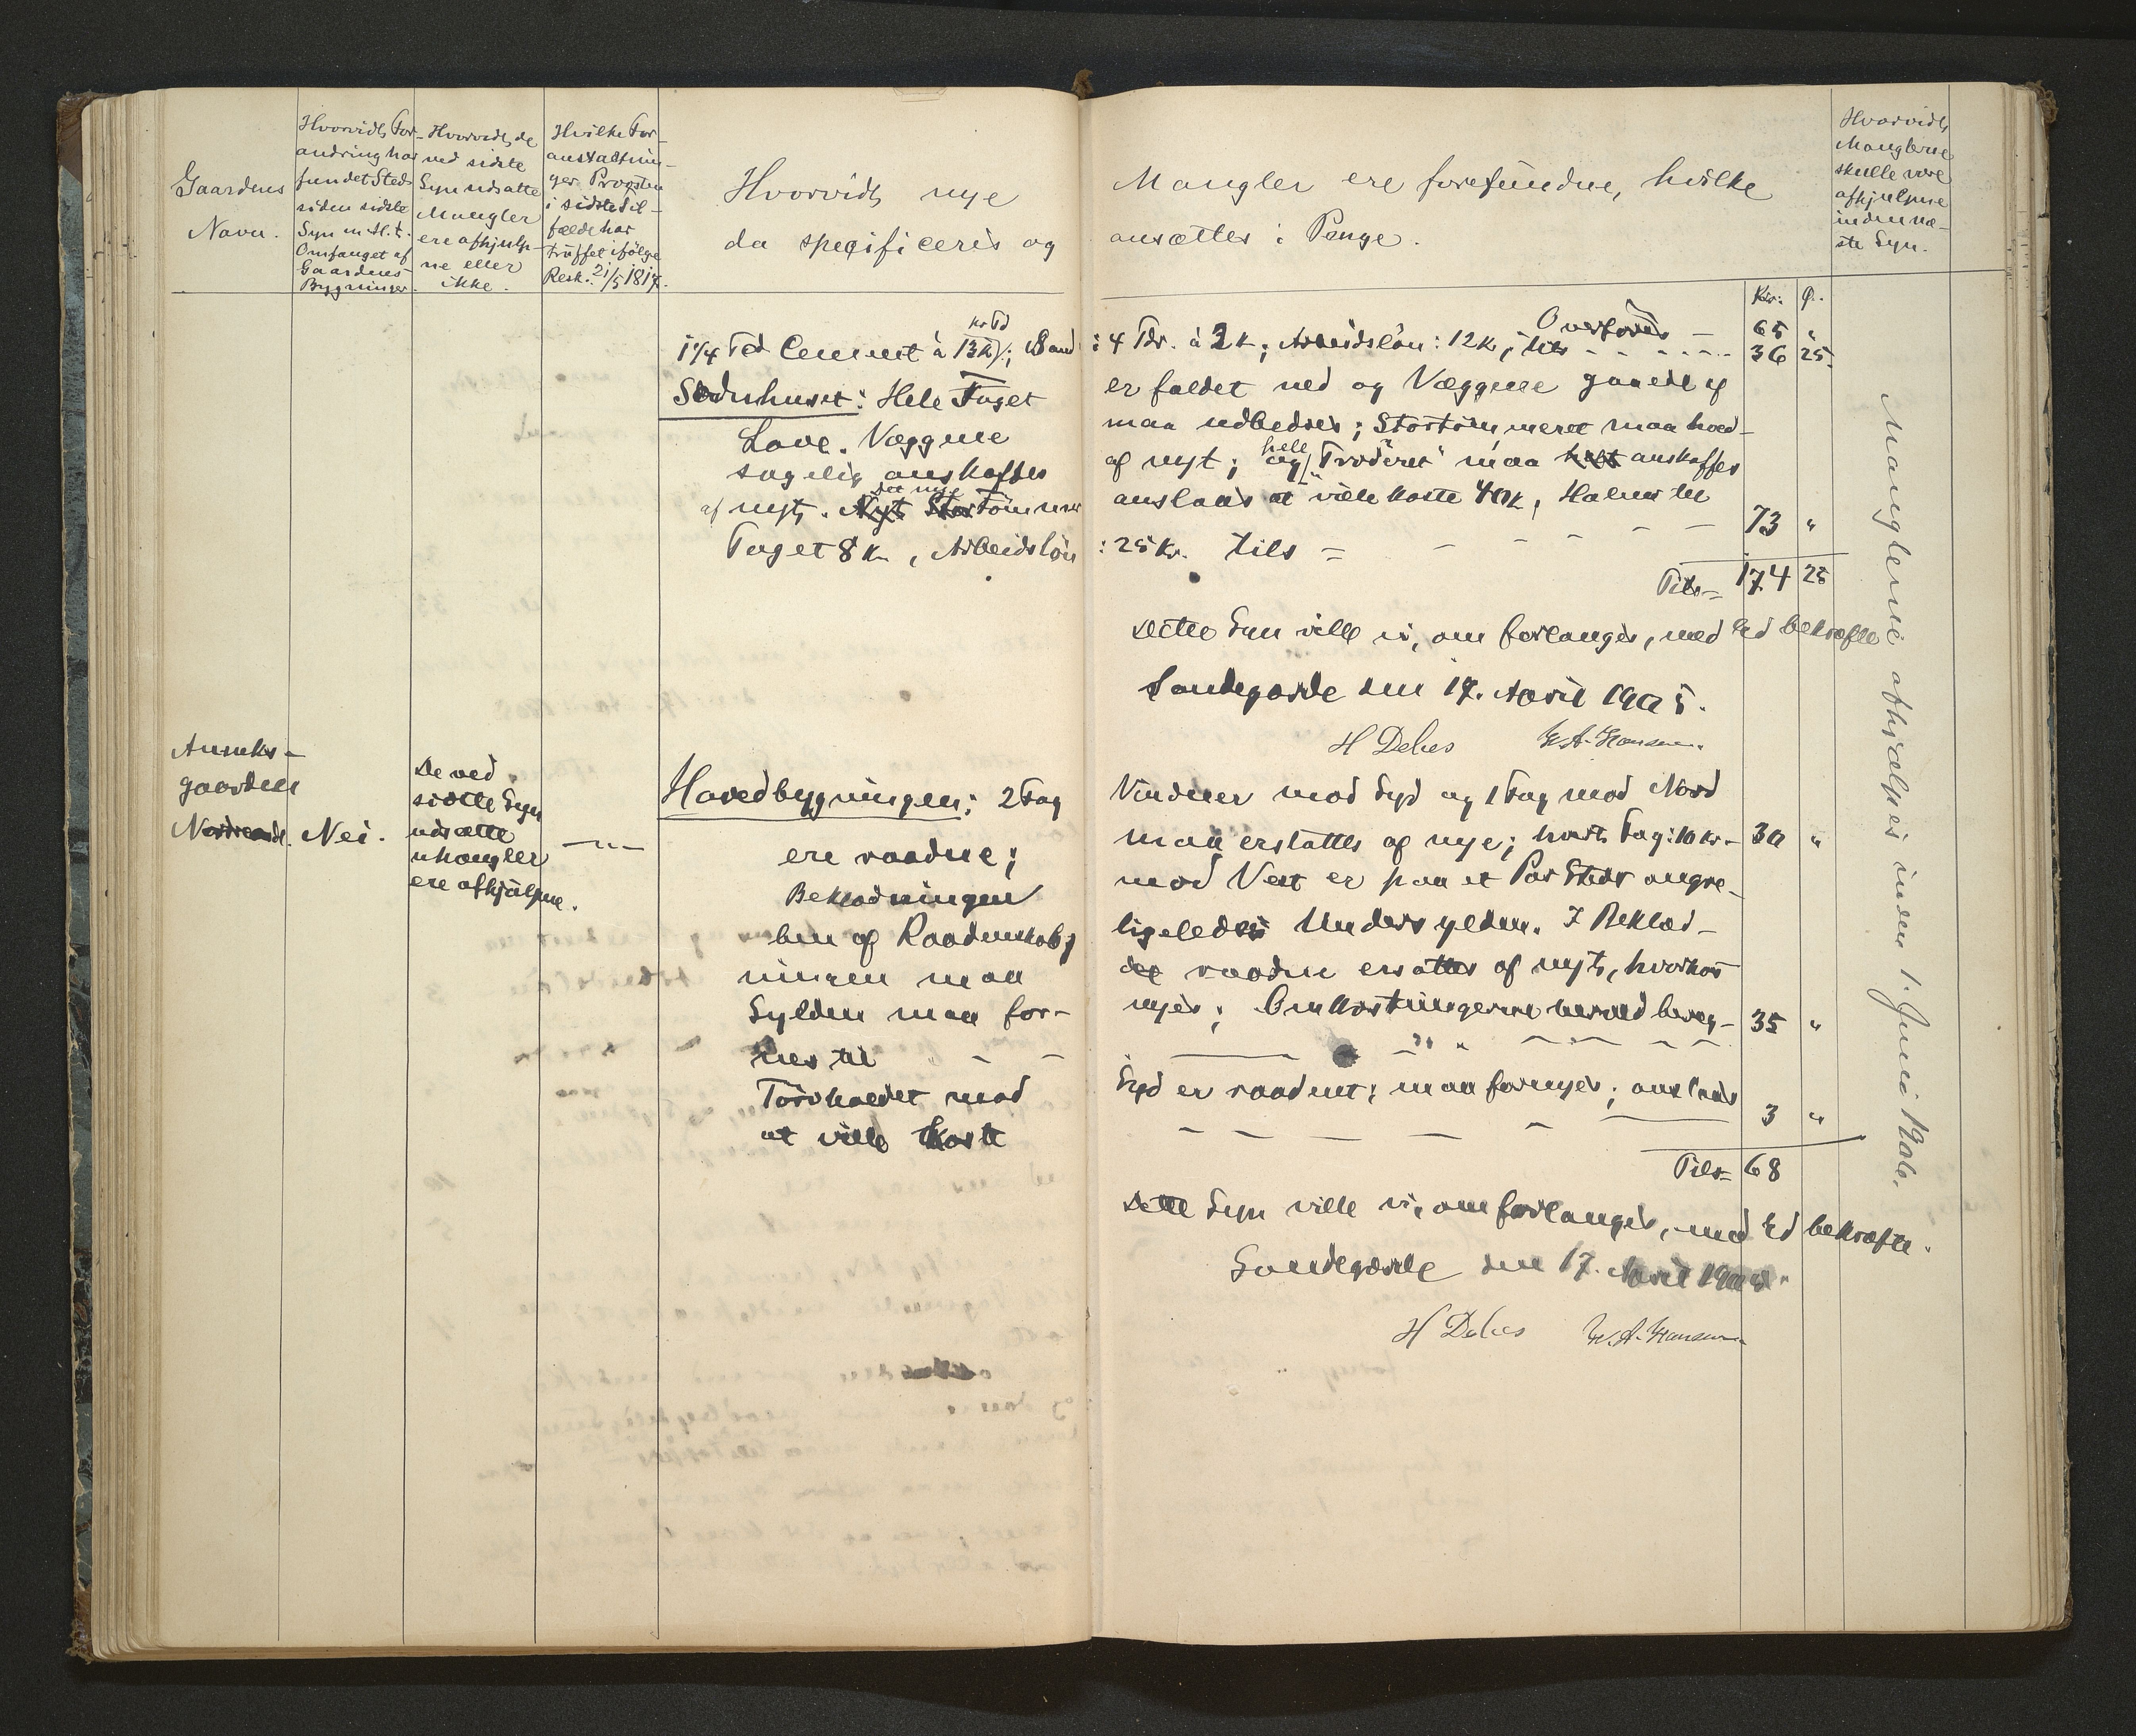 Gaardens
Navn.
Hvorvidt For-
andring har
fundet Sted
siden sidste
Syn m. H. t.
Omfanget af
Gaardens
Bygninger.
Hvorvidt de
ved sidste
Syn udsatte
Mangler
ere afhjulp-
ne eller
ikke.
Hvilke For-
anstaltnin-
ger Provsten
i sidste Til-
fælde har
truffet ifölge
Resk. 21/5 1817.
Hvorvidt nye
da specificeres og
Mangler ere forefundne, hvilke
ansættes i Penge.
Hvorvidt
Manglerne
skulle være
afhjulpne
inden næ-
ste Syn.
Kr: Ø.
Overföres — 65 "
1 1/4 Td Cement à 13 K; Sand: 4 Tdr. à 3 K; Arbeidslön: 12 Kr, tils - - - - - 36 25
Hele Taget er faldet ned og Væggene gaaede af
Lave. Væggene maa udbedres; Störtömmeret maa hoved-
sagelig anskaffes af nyt; og hele "Tröderet" maa helt anskaffes
af nyt. Nyt Stor det nye Tömmer anslaaes at ville koste 40 K, Halm til
Taget 8 K, Arbeidslön: 25 Kr. tils = - - - - 73 "
Tils = 174 25
Dette Syn ville vi, om forlanges, med Ed bekræfte
Sandegærde den 17. April 1905.
H Dehes W. A. Hansen
Anneks-
gaarden
Nei.
De ved
sidste Syn
udsatte
Mangler
ere afhjulpne.
— " —
Hovedbygningen: 2 Fag Vinduer mod Syd og 1 Fag mod Nord
ere raadne; maa erstattes af nye; hvert Fag: 10 Kr - 30 "
Beklædningen mod Vest er paa et Par Steder angre-
ben af Raaddenskab; ligeledes Undersylden. I Beklæd-
ningen maa det raadne ersattes af nyt, hvorhos
Sylden maa for- nyes; Omkostningerne herved bereg- 35 "
nes til - - -
Törvholdet mod Syd er raadent; maa fornyes; anslaaes
at ville koste - - - - 3 "
Tils = 68
Dette Syn ville vi, om forlanges, med Ed bekræfte.
Sandegærde den 17. April
H Dehes W. A. Hansen
Manglerne afhjælpes inden 1. Juni 1906.